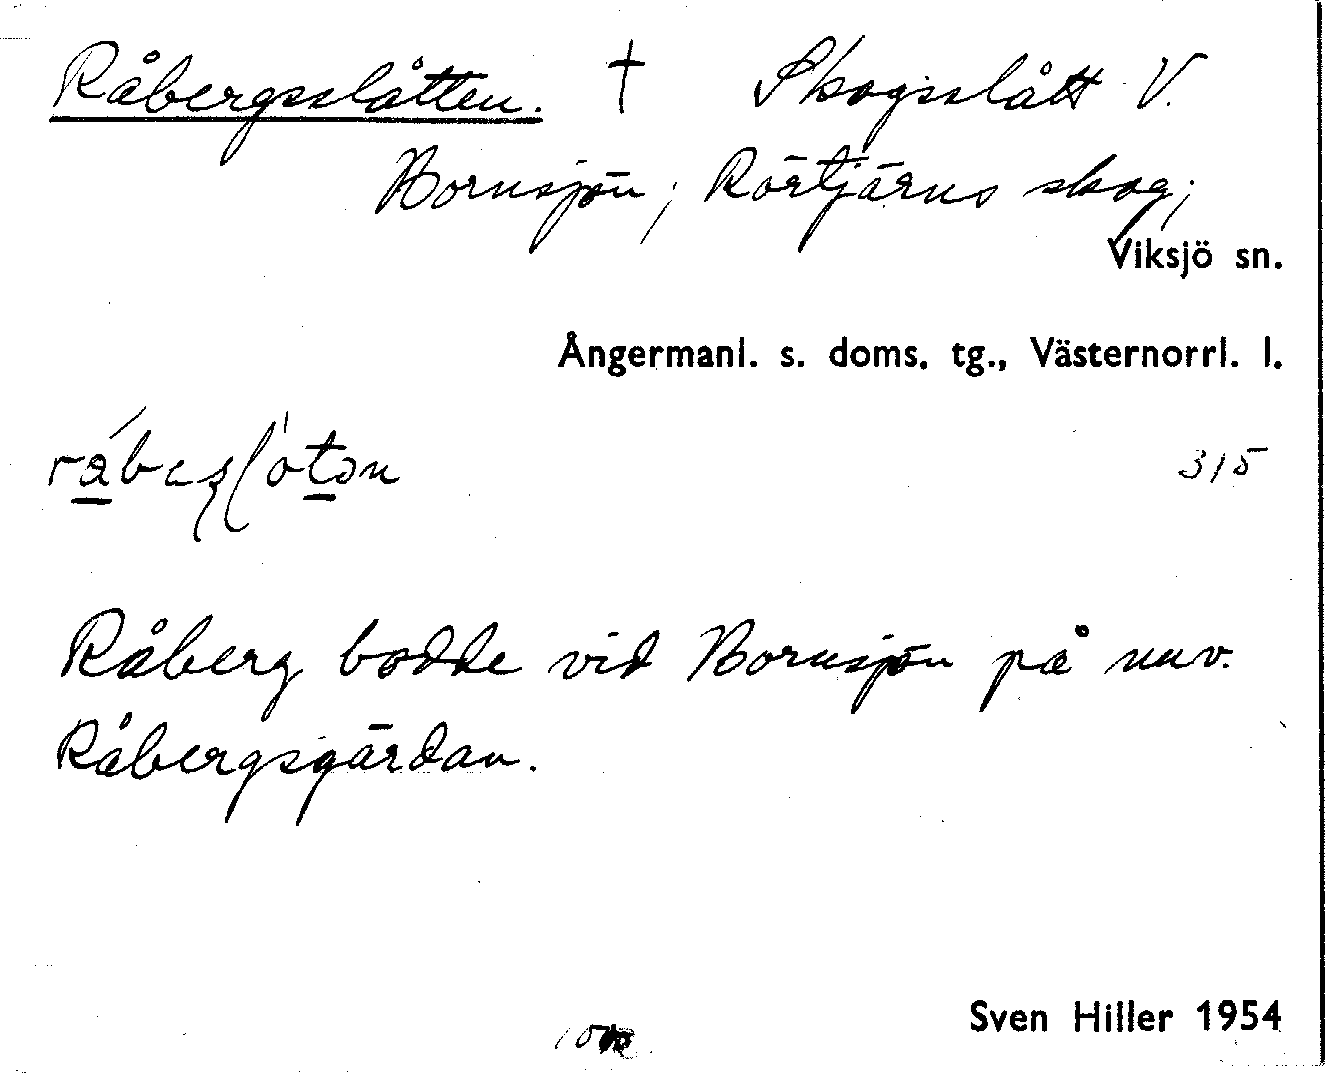 Råbergsslåtten. † Skogsslått V.
Bornsjön; Rörtjärns skog;
Viksjö sn.
Ångermanl. s. doms. tg., Västernorrl. l.
315
Råberg bodde vid Bornsjön på nuv.
Råbergsgärdan.
Sven Hiller 1954